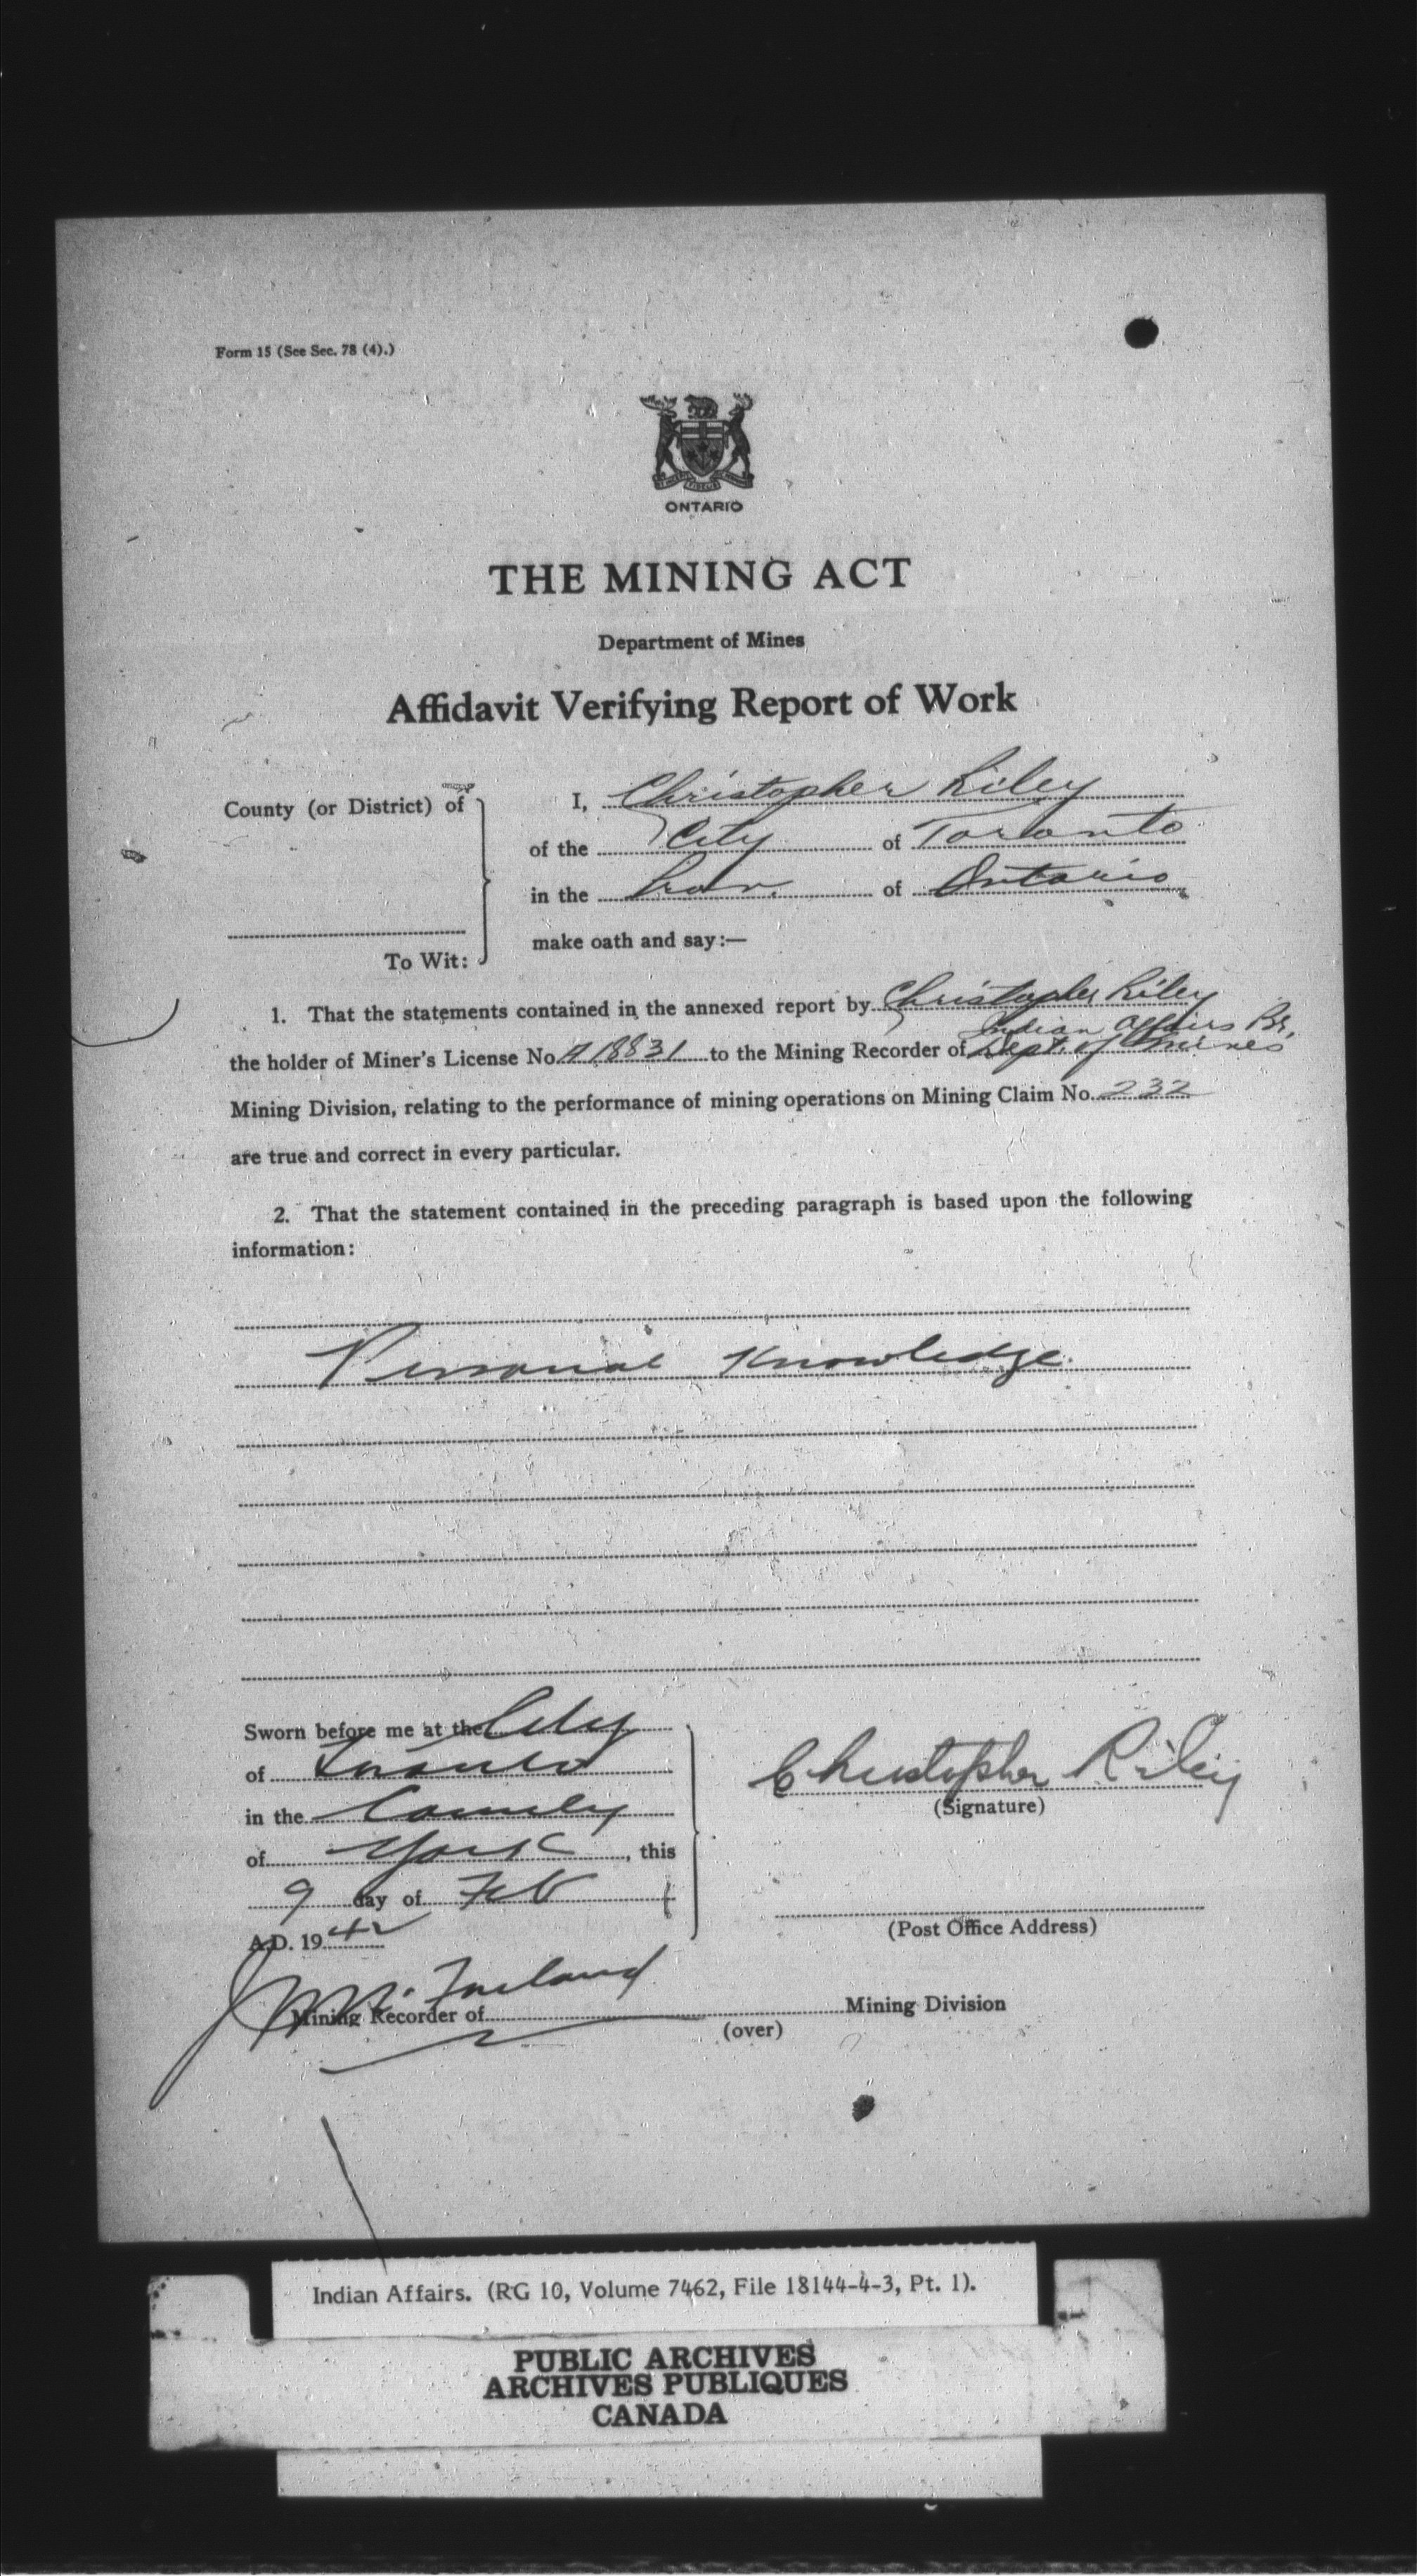 Form 15 (See Sec. 78 (4).)
ONTARIO
THE MINING ACT
Department of Mines
Affidavit Verifying Report of Work
County (or District) of
To Wit:
I, Christopher Riley
of the City of Toronto
in the Prov. of Ontario
make oath and say:—
1. That the statements contained in the annexed report by Christopher Riley
Indian Affairs Br.
the holder of Miner's License No. A 18831 to the Mining Recorder of Dept. of Mines
Mining Division, relating to the performance of mining operations on Mining Claim No. 232
are true and correct in every particular.
2. That the statement contained in the preceding paragraph is based upon the following
information:
Personal Knowledge.
Sworn before me at the City
of Toronto
in the County
of York, this
9 day of Feb
A.D. 1942
Christopher Riley
(Signature)
(Post Office Address)
Mining Recorder of Mining Division
(over)
Indian Affairs. (RG 10, Volume 7462, File 18144-4-3, Pt. 1).
PUBLIC ARCHIVES
ARCHIVES PUBLIQUES
CANADA